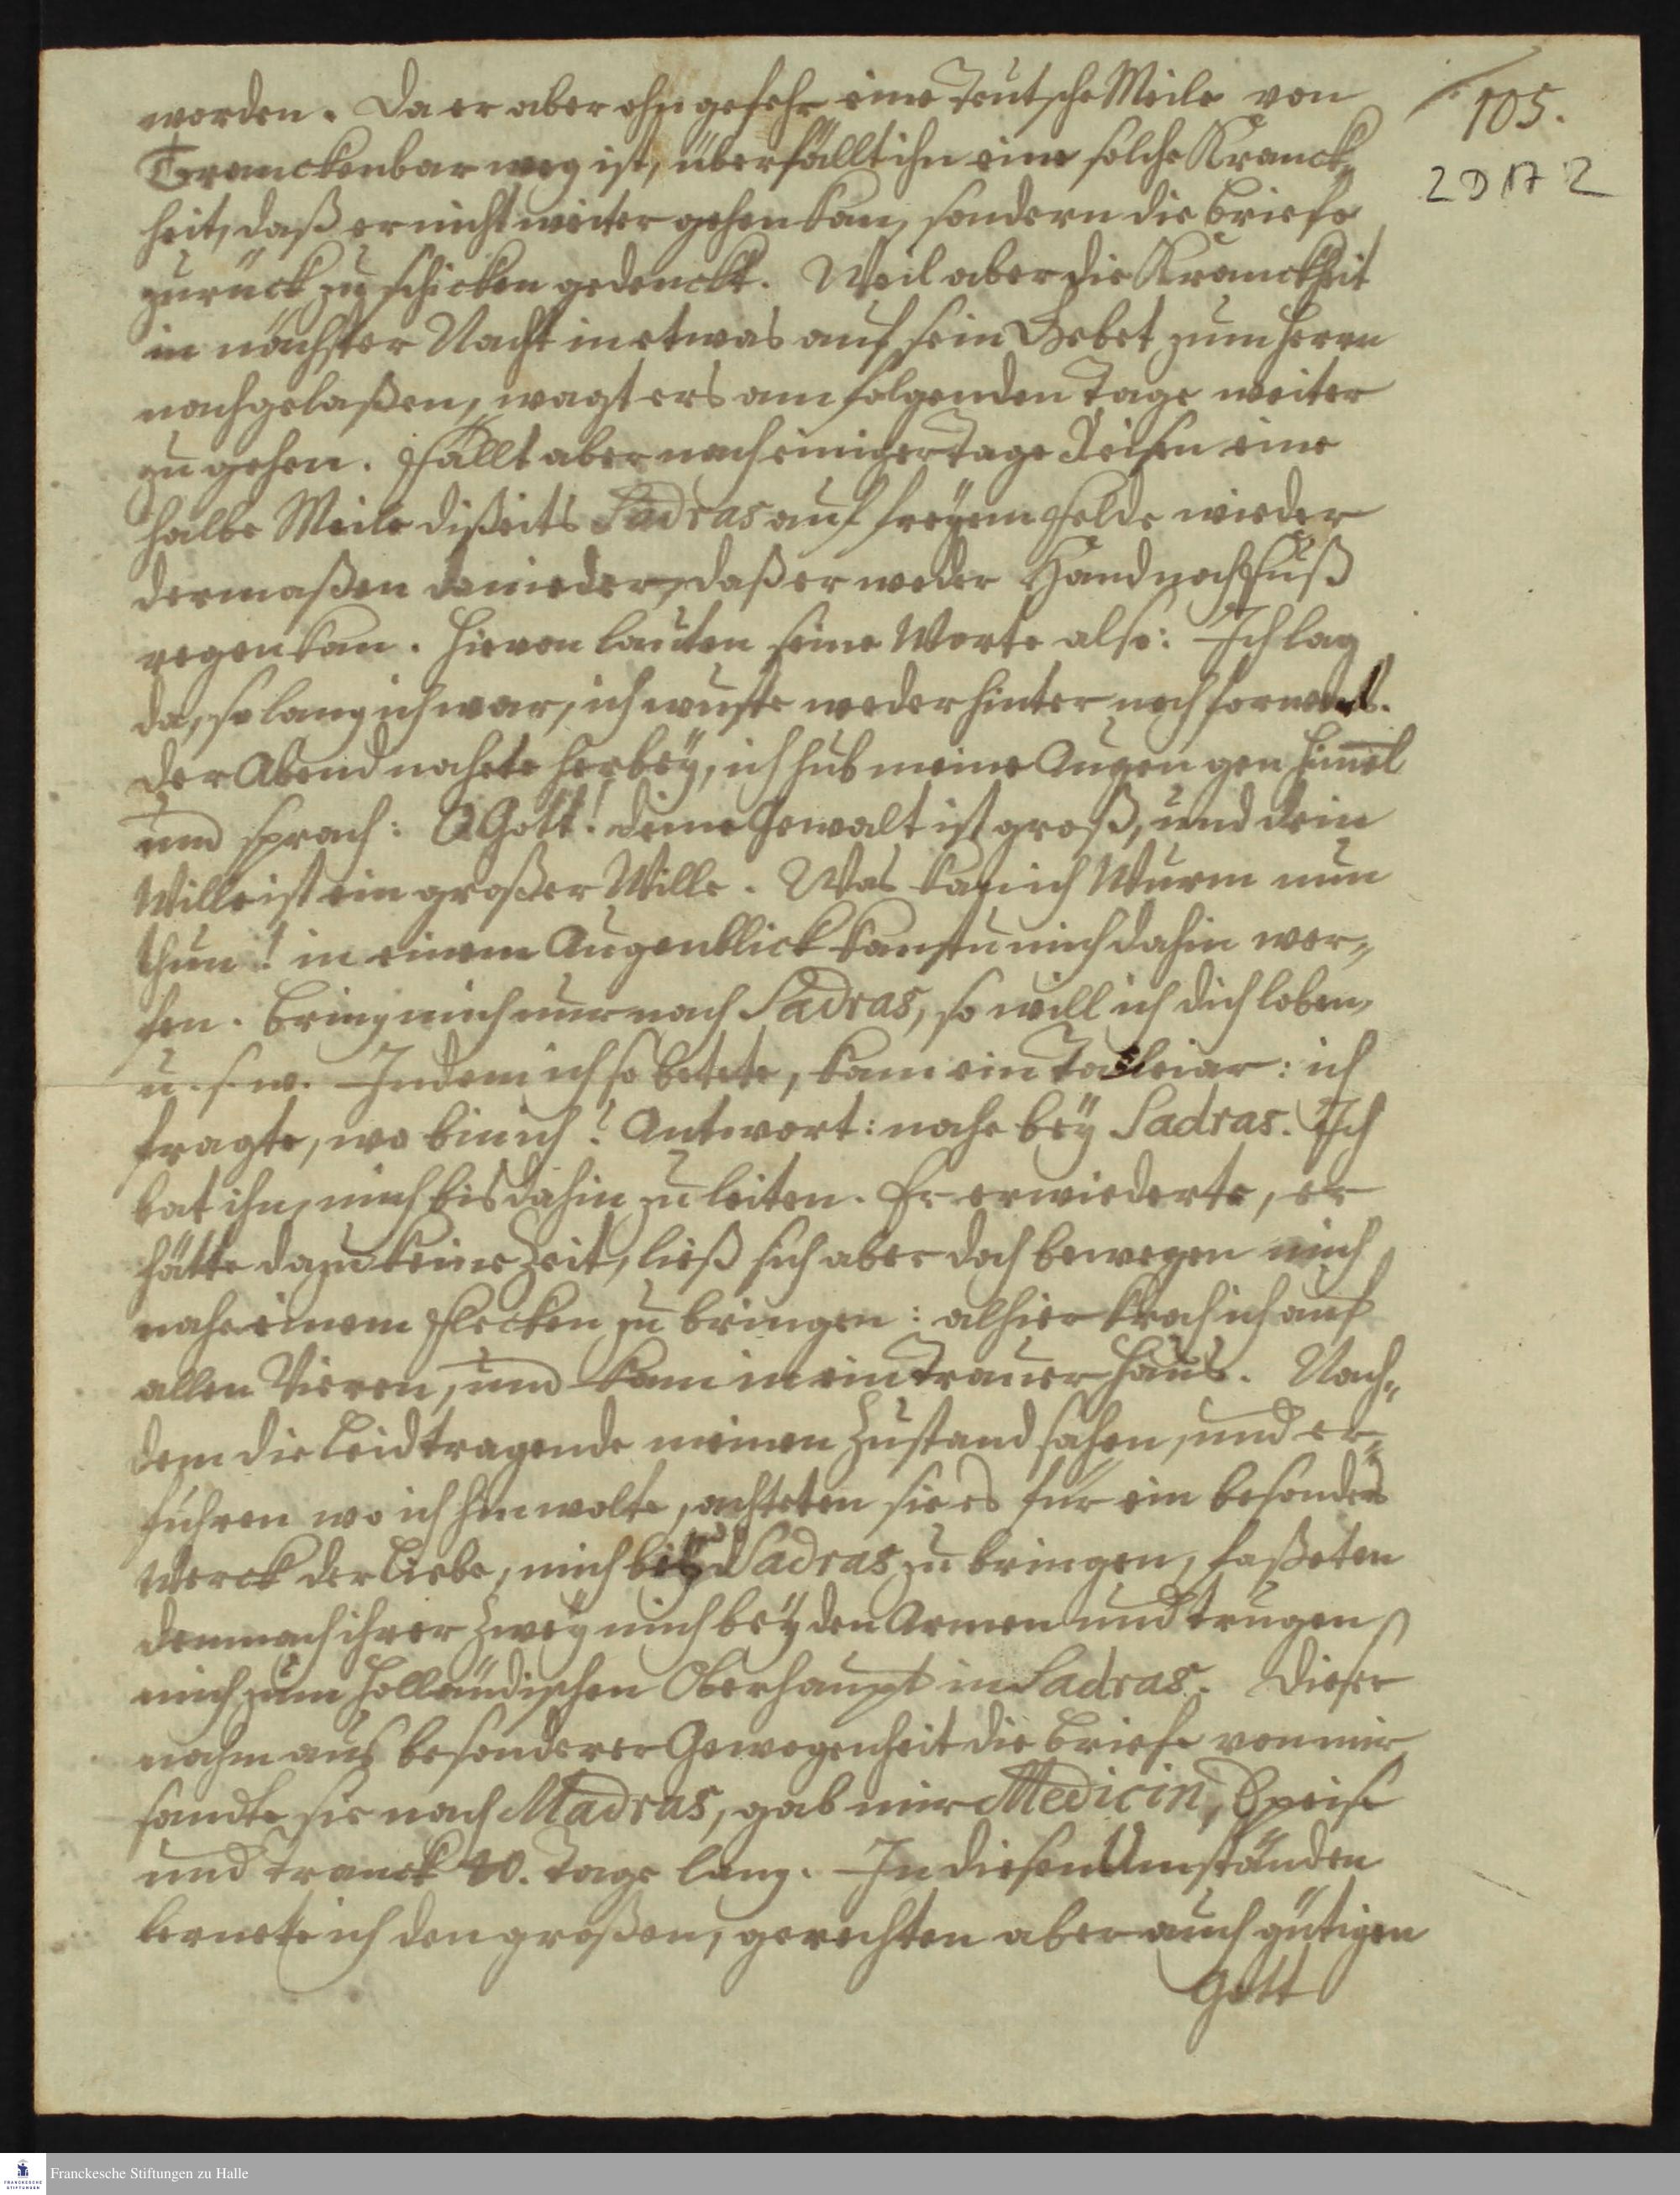 105.
2 D 17 2
worden. Da er aber ohngefehr eine Teutsche Meile von
Tranckenbar weg ist, überfällt ihn eine solche Kranck-
heit, daß er nicht weiter gehen kan, sondern die Briefe
zurück zu schicken gedenckt. Weil aber die Kranckheit
in nächster Nacht in etwas auf sein Gebet zum Herrn
nachgelaßen, wagt ers am folgenden Tage weiter
zu gehen. Fällt aber nach einiger Tage Reisen eine
halbe Meile dißeits Sadras auf freyem Felde wieder
dermaßen danieder, daß er weder Hand noch Fuß
regen kan. Hievon lauten seine Worte also: Ich lag
da, so lang ich war, ich wuste weder hinter noch forwerts.
Der Abend nahete herbey, ich hub meine Augen gen Himel
und sprach: O Gott! deine Gewalt ist groß, und dein
Wille ist ein großer Wille. Was kan ich Wurm nun
thun! in einem Augenblick kanstu mich dahin wer-
fen. Bring mich nur nach Sadras, so will ich dich loben,
u. s. w. Indem ich so betete, kam ein : ich
fragte, wo bin ich? Antwort: nahe bey Sadras. Ich
bat ihn, mich bis dahin zu leiten. Er erwiederte, er
hätte dazu keine Zeit, ließ sich aber doch bewegen mich
nahe einem Flecken zu bringen: alhier kroch ich auf
allen Vieren, und kam in ein Trauer Haus. Nach-
dem die Leidtragende meinen Zustand sahen, und er-
fuhren wo ich hin wolte, achteten sie es für ein besonders
Werck der Liebe, mich Sadras zu bringen, faßeten
demnach ihrer Zwey mich bey den Armen und trugen
mich zum Holländischen Oberhaupt in Sadras. Dieser
nahm aus besonderer Gewogenheit die Briefe von mir
sandte sie nach Madras, gab mir Medicin, Speise
und Tranck 40. Tage lang. In diesen Umständen
lernete ich den großen, gerechten aber auch gütigen
Gott
Franckesche Stiftungen zu Halle
FRANCKESCHE STIFTUNGEN